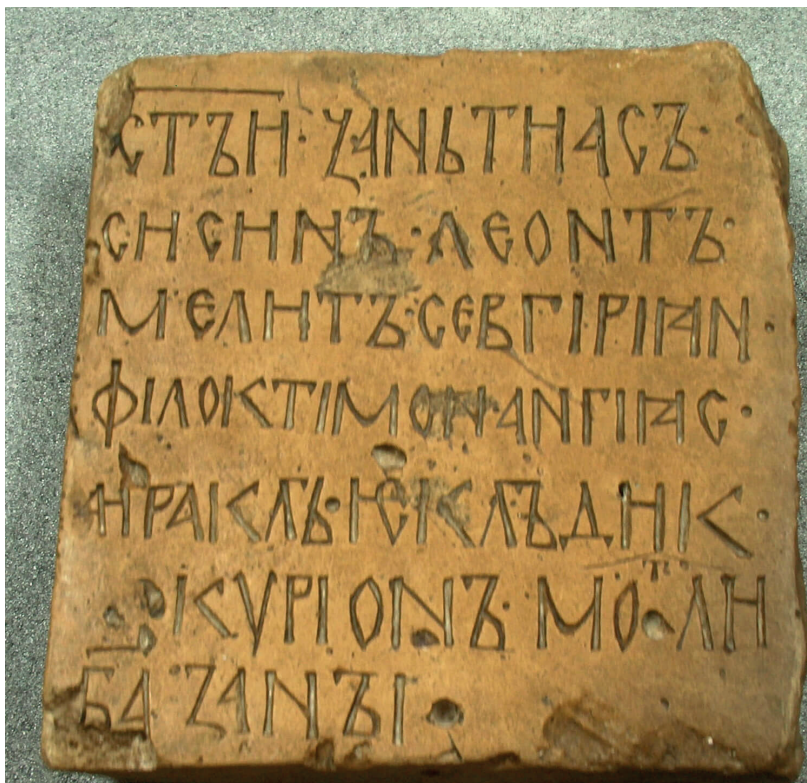 СТЪН· ѮАNЬТНАСЪ·
СНСНNЪ·ЛЕОNТЪ·
МЕЛНТЪ·СЕВГІРІꙖN·
ФІЛОКТІМОN·АNГІꙖС·
НРАКЛЪ·ѤКЛЪДНК·
·КУРІОNЪ·МОЛН
БА ZА NЪІ·